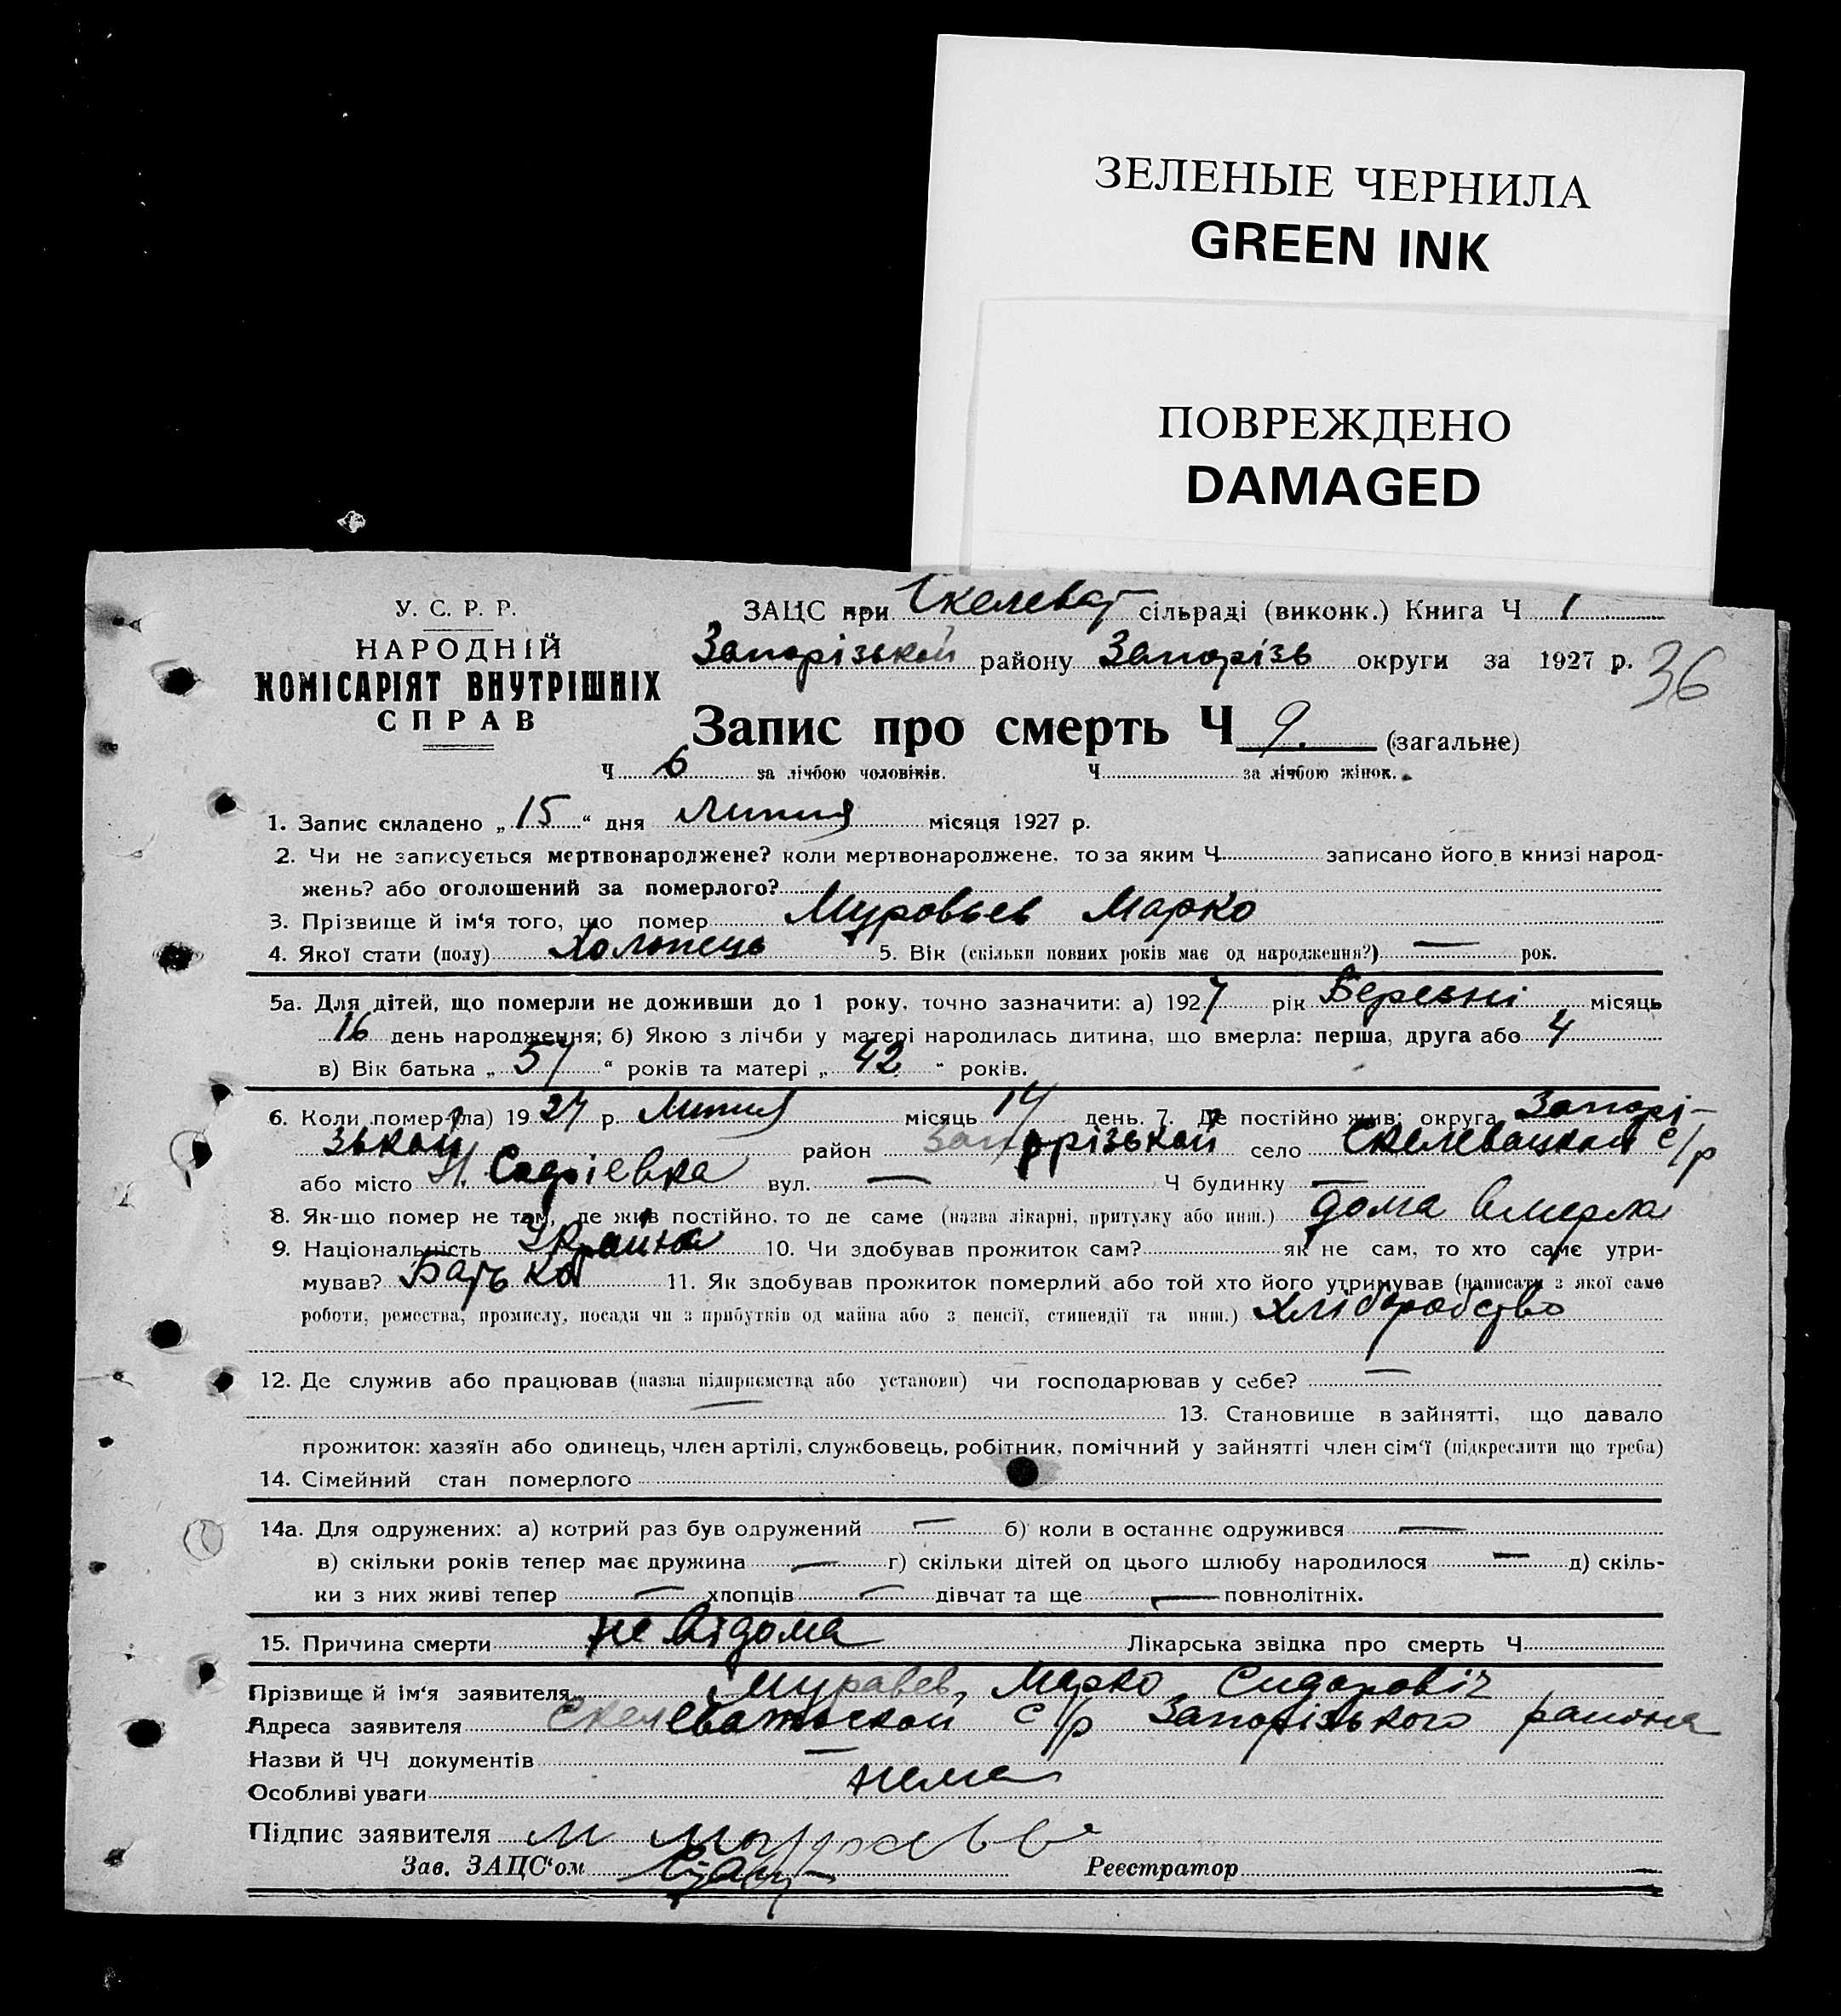 ЗЕЛЕНЫЕ ЧЕРНИЛА
GREEN INK
ПОВРЕЖДЕНО
DAMAGED
У. С. Р. Р.
НАРОДНІЙ
КОМІСАРІЯТ ВНУТРІШНІХ
СПРАВ
ЗАЦС при Скелеват сільраді (виконк.) Книга Ч 1
Запорізькой району Запорізь округи за 1927 р.
36
Запис про смерть Ч 9. (загальне)
Ч 6 за лічбою чоловіків. Ч за лічбою жінок.
1. Запис складено „ 15 “ дня Липня місяця 1927 р.
2. Чи не записується мертвонароджене? коли мертвонароджене, то за яким Ч записано його в книзі народ-
жень? або оголошений за померлого?
3. Прізвище й ім‘я того, що помер Муровьев Марко
4. Якої стати (полу) Хольпець 5. Вік (скільки повних років має од народження?) — рок.
5а. Для дітей, що померли не доживши до 1 року, точно зазначити: а) 1927 рік Березні місяць
16 день народження; б) Якою з лічби у матері народилась дитина, що вмерла: перша, друга або 4
в) Вік батька „ 57 “ років та матері „ 42 “ років.
6. Коли помер(ла) 1927 р. Липня місяць 14 день. 7. Де постійно жив: округа Запорі-
зькой район Запорізькой село Скелевацкой с/р
або місто вул. — Ч будинку —
8. Як-що помер не там, де жив постійно, то де саме (назва лікарні, притулку або инш.) дома вмерла
9. Національність Украина 10. Чи здобував прожиток сам? як не сам, то хто саме утри-
мував? Батько 11. Як здобував прожиток померлий або той хто його утримував (написати з якої саме
роботи, ремества, промислу, посади чи з прибутків од майна або з пенсії, стипендії та инш.) хліборобство
12. Де служив або працював (назва підприємства або установи) чи господарював у себе? —
— 13. Становище в зайнятті, що давало
прожиток: хазяїн або одинець, член артілі, службовець, робітник, помічний у зайнятті член сім‘ї (підкреслити що треба)
14. Сімейний стан померлого
14а. Для одружених: а) котрий раз був одружений — б) коли в останнє одружився —
в) скільки років тепер має дружина — г) скільки дітей од цього шлюбу народилося — д) скіль-
ки з них живі тепер — хлопців — дівчат та ще — повнолітніх.
15. Причина смерти не відома Лікарська звідка про смерть Ч
Прізвище й ім‘я заявителя Муравев, Марко Сидоровіч
Адреса заявителя Скелеватьской с/р Запорізького района
Назви й ЧЧ документів —
Особливі уваги нема
Підпис заявителя М
Зав. ЗАЦС‘ом Реєстратор